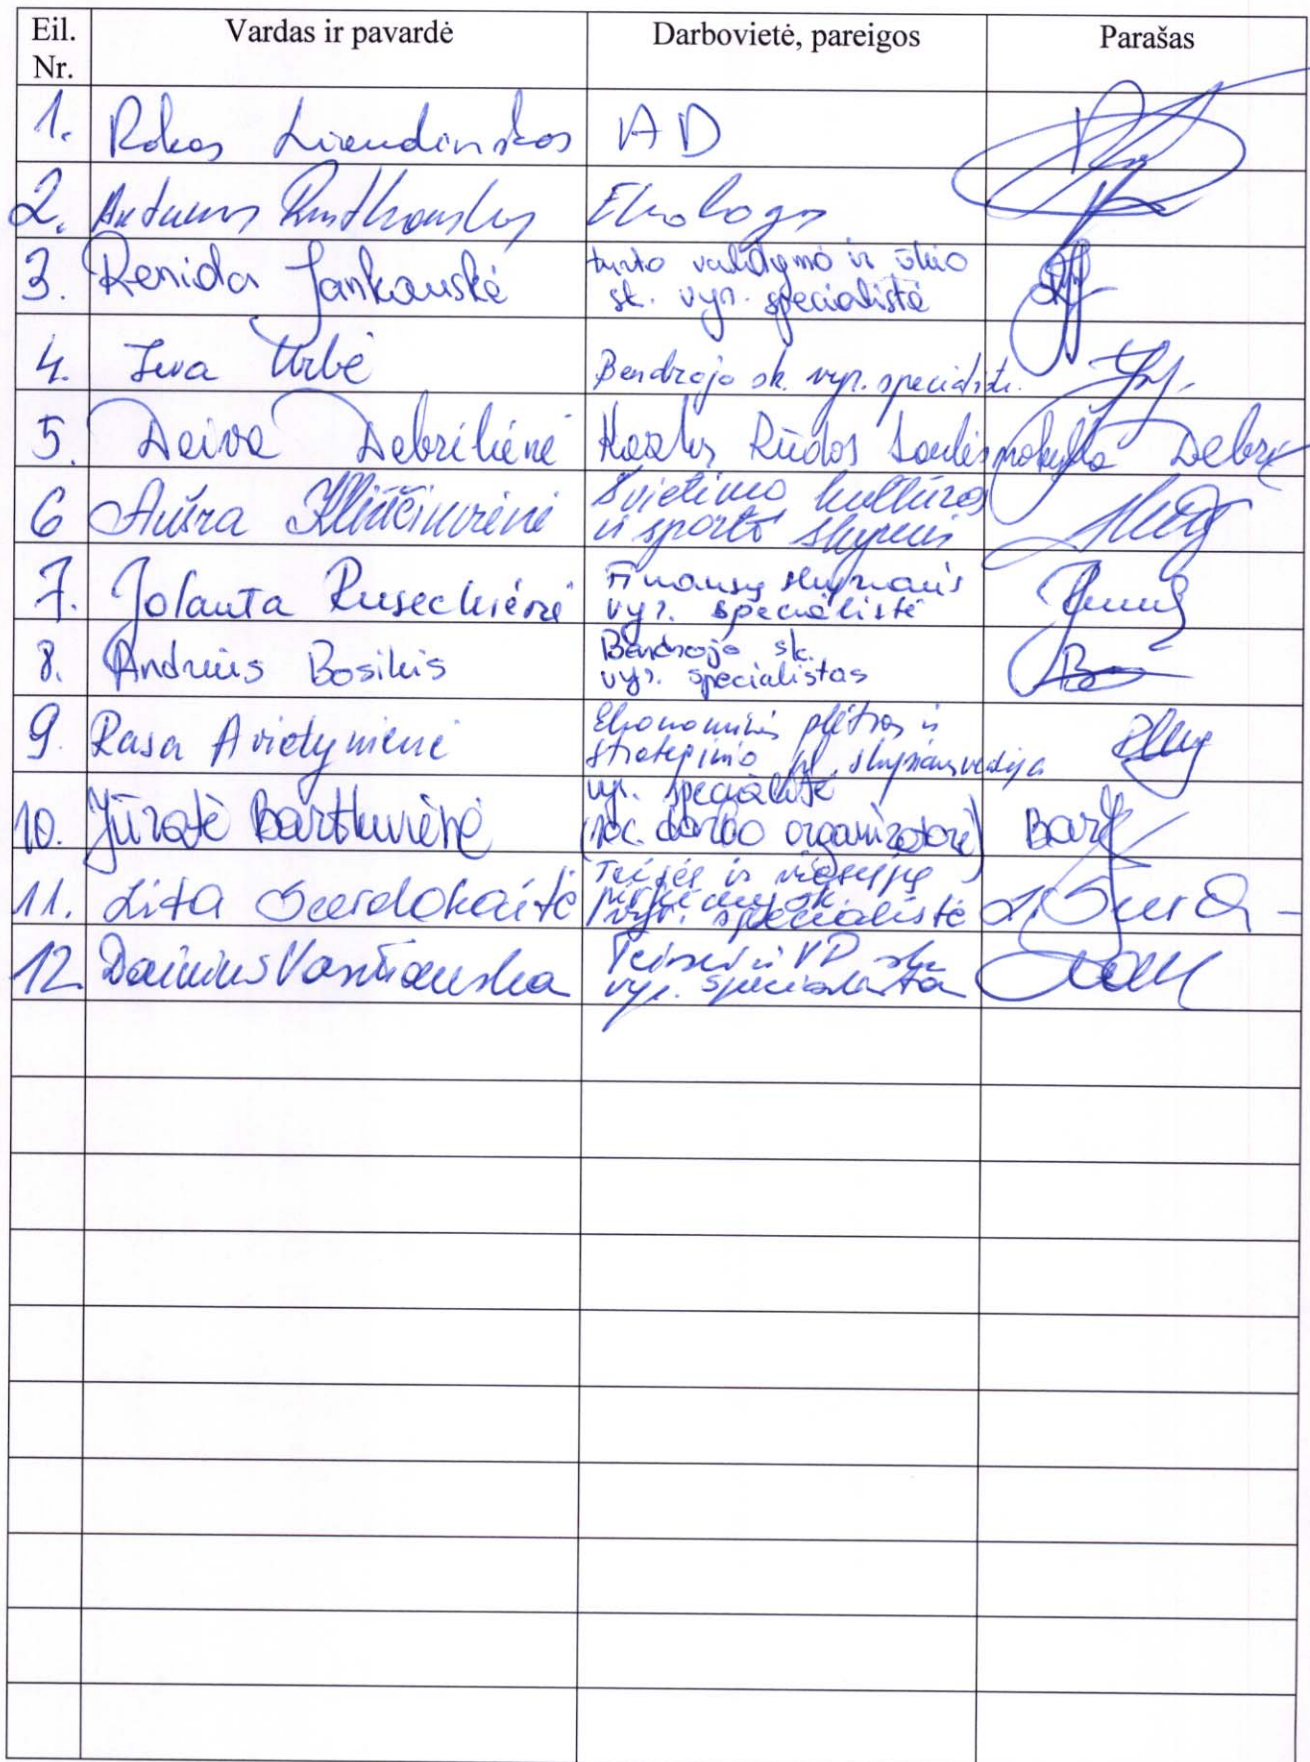 Eil. Nr. Vardas ir pavardė Darbovietė, pareigos Parašas
1. Rokas AD
2. Ekologas
3. Renida Jankauskė turto valdymo ir ūkio
sk. vyr. specialistė
4. Ieva Urbė Bendrojo sk. vyr. specialistė
5. Deiva Debrilienė Kazlų Rūdos Saulės mokykla Debr
6 Aušra Švietimo kultūros
ir sporto skyrius
7. Jolanta Finansų skyriaus
vyr. specialistė
8. Andrius Bosikis Bendrojo sk.
vyr. specialistas
9. Rasa Avietynienė Ekonominės plėtros ir
strateginio pl. skyriaus vedėja
10. Jūratė Bartkuvienė vyr. specialistė
(soc. darbo organizatorė) Bart
11. Lita Surdokaitė Teisės ir viešųjų
pirkimų sk.
vyr. specialistė
12. Dainius
vyr.